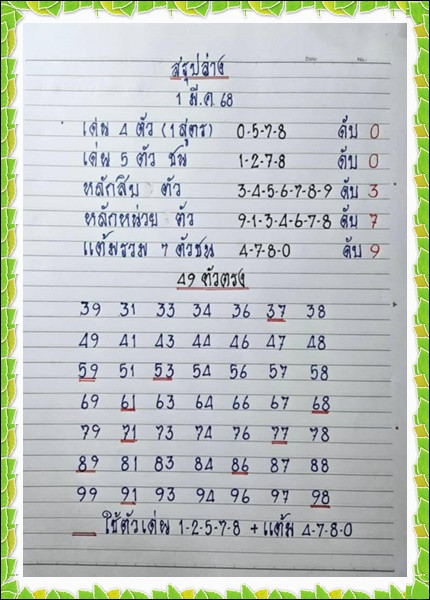 สรุปล่าง
1 มี.ค 68
เด่น 4 ตัว (1สูตร) 0-5-7-8 ดับ 0
เด่น 5 ตัว ชน 1-2-7-8 ดับ 0
หลักสิบ ตัว 3-4-5-6-7-8-9 ดับ 3
หลักหน่วย ตัว 9-1-3-4-6-7-8 ดับ 7
แต้มรวม 7 ตัวชน 4-7-8-0 ดับ 9
49 ตัวตรง
39 31 33 34 36 37 38
49 41 43 44 46 47 48
59 51 53 54 56 57 58
69 61 63 64 66 67 68
79 71 73 74 76 77 78
89 81 83 84 86 87 88
99 91 93 94 96 97 98
ใช้ตัวเด่น 1-2-5-7-8 + แต้ม 4-7-8-0